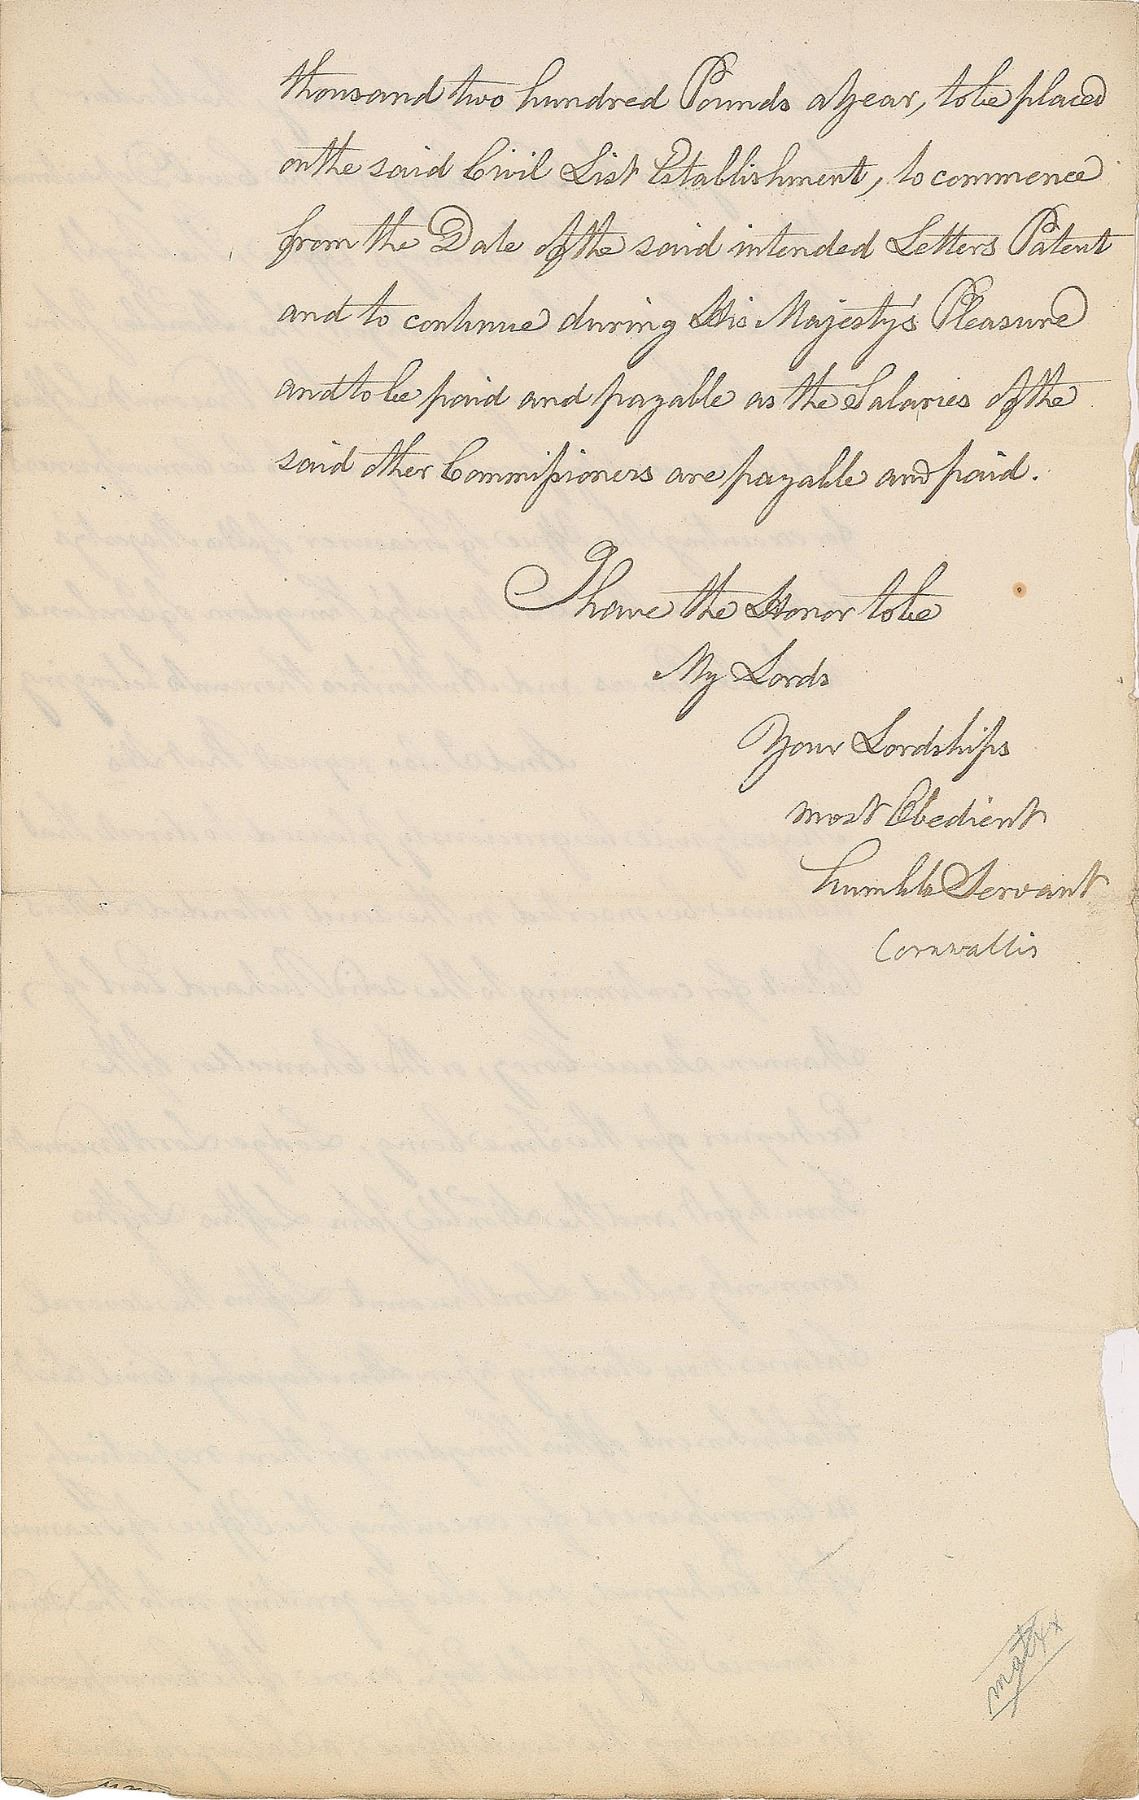 thousand two hundred Pounds a Year, to be placed
on the said Civil List Establishment, to commence
from the Date of the said intended Letters Patent
and to continue during His Majesty's Pleasure
and to be paid and payable as the Salaries of the
said other Commissioners are payable and paid.
I have the Honor to be
My Lords
Your Lordships
most Obedient
humble Servant
Cornwallis